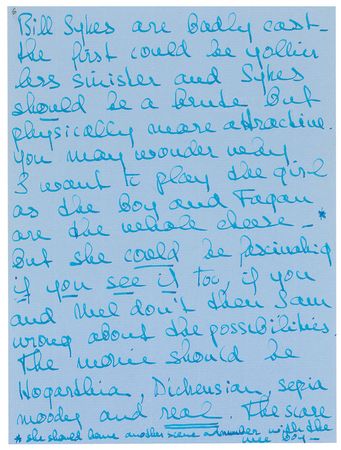 6
Bill Sykes are badly cast -
the first could be
less sinister and Sykes
should be a brute but
physically more attractive.
You may wonder why
I want to play the girl
as the Boy and Fagan
are the whole cheese - *
But she could be fascinating
if you see it too, if you
and Mel don't then I am
wrong about the possibilities.
The movie should be
Hogarthian, Dickensian, sepia
moody and real. The
* she should have another scene or number with the
nice boy -